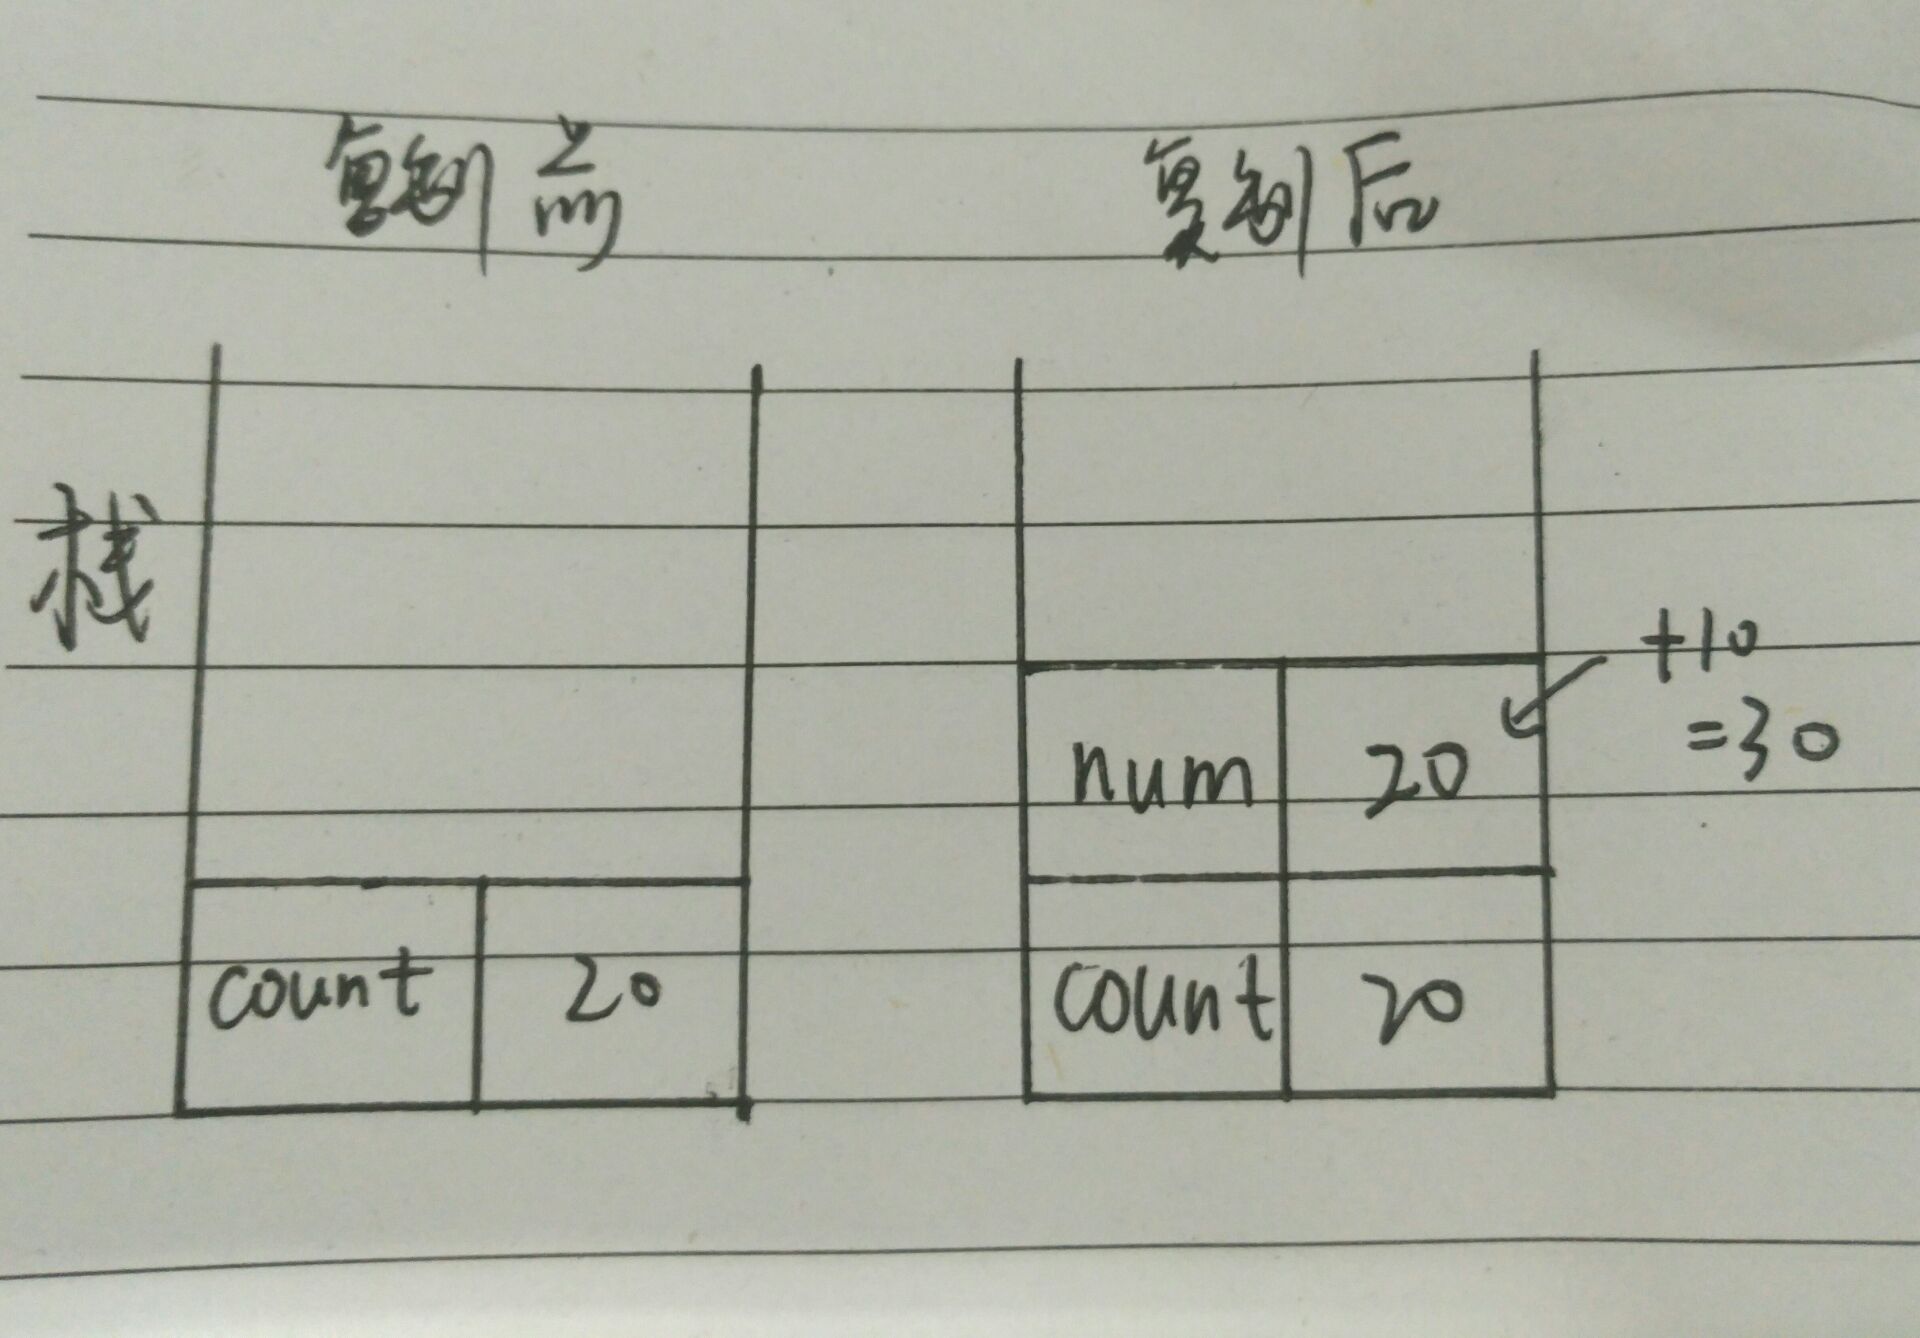 复制前 复制后
栈
+10
=30
num 20
count 20
count 20